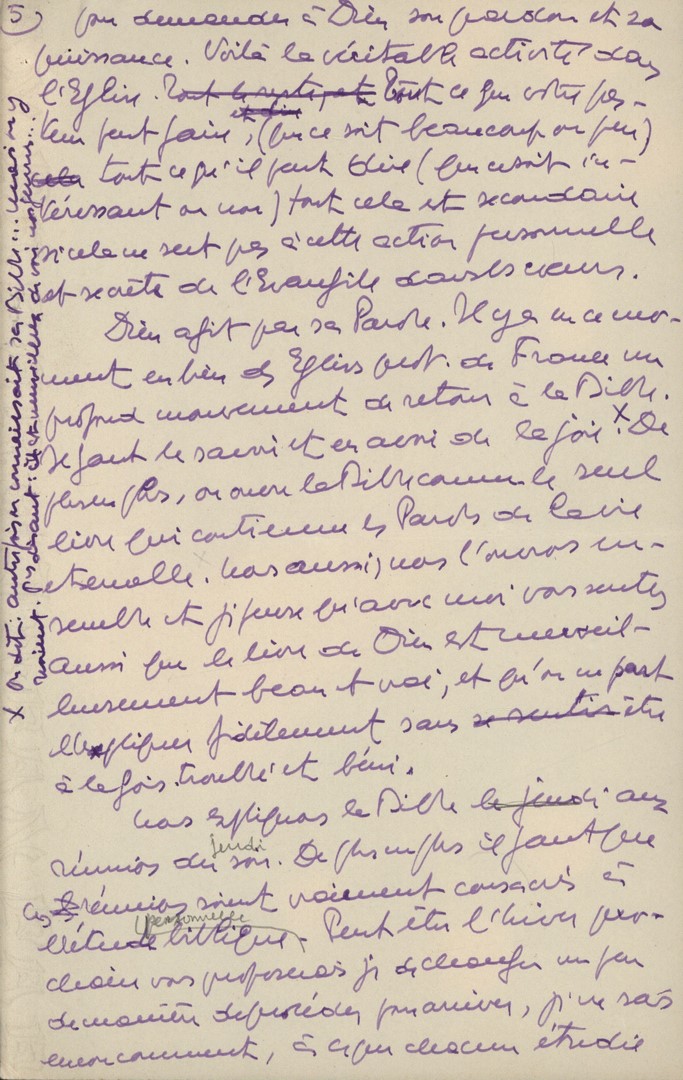 5
pour demander à Dieu son pardon et sa
puissance. Voilà la véritable activité dans
l'Eglise. Tout le reste, et Tout ce que votre pas-
teur peut faire, (que ce soit beaucoup ou peu)
et dire
cela tout ce qu'il peut dire (que ce soit in-
téressant ou non) tout cela est secondaire
si cela ne sert pas à cette action personnelle
et secrète de l'Evangile dans les cœurs.
Dieu agit par sa Parole. Il y a en ce mo-
ment en bien des Eglises prot. de France un
profond mouvement de retour à la Bible.
Il faut le savoir et en avoir de la joie X. De
plus en plus, on ouvre la Bible comme le seul
livre qui contienne les Paroles de la vie
éternelle. Nous aussi, nous l'ouvrons en-
semble et je pense qu'avec moi vous sentez
aussi que le livre de Dieu est merveil-
leusement beau et vrai, et qu'on ne peut
l'expliquer fidèlement sans se sentir être
à la fois troublé et béni.
Nous expliquons la Bible le jeudi aux
réunions du jeudi soir. De plus en plus il faut que
ces réunions soient vraiment consacrées à
l'étude biblique personnelle. Peut être l'hiver pro-
chain vous proposerais je de changer un peu
de manière de procéder pour arriver, je ne sais
encore comment, à ce que chacun étudie
X On dit: autrefois on connaissait sa Bible... mais
disant: il est merveilleux de voir